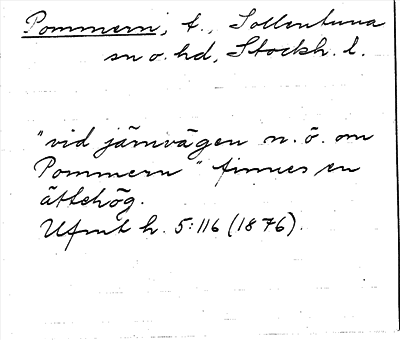 Pommern, t., Sollentuna
sn o. hd, Stockh. l.
"vid järnvägen n. ö. om
Pommern" finnes en
ättehög.
Ufmt h. 5:116 (1876).